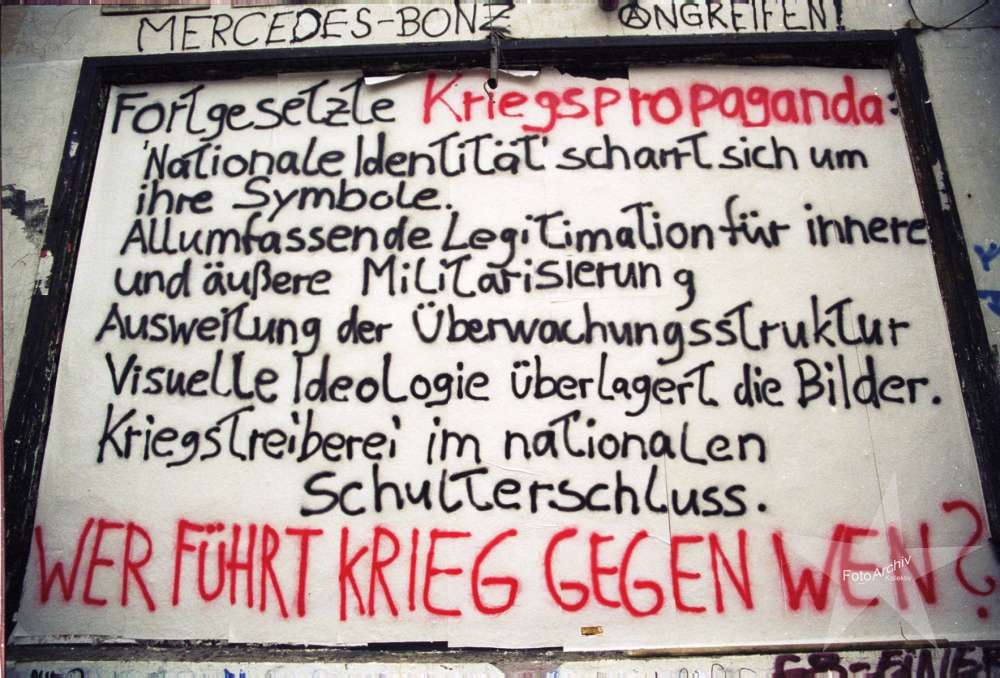 MERCEDES-BONZ ANGREIFEN!
Fortgesetzte Kriegspropaganda:
'Nationale Identität' scharrt sich um
ihre Symbole.
Allumfassende Legitimation für innere
und äußere Militarisierung
Ausweitung der Überwachungsstruktur
Visuelle Ideologie überlagert die Bilder.
Kriegstreiberei im nationalen
Schulterschluss.
WER FÜHRT KRIEG GEGEN WEN?
FotoArchiv
Kollektiv